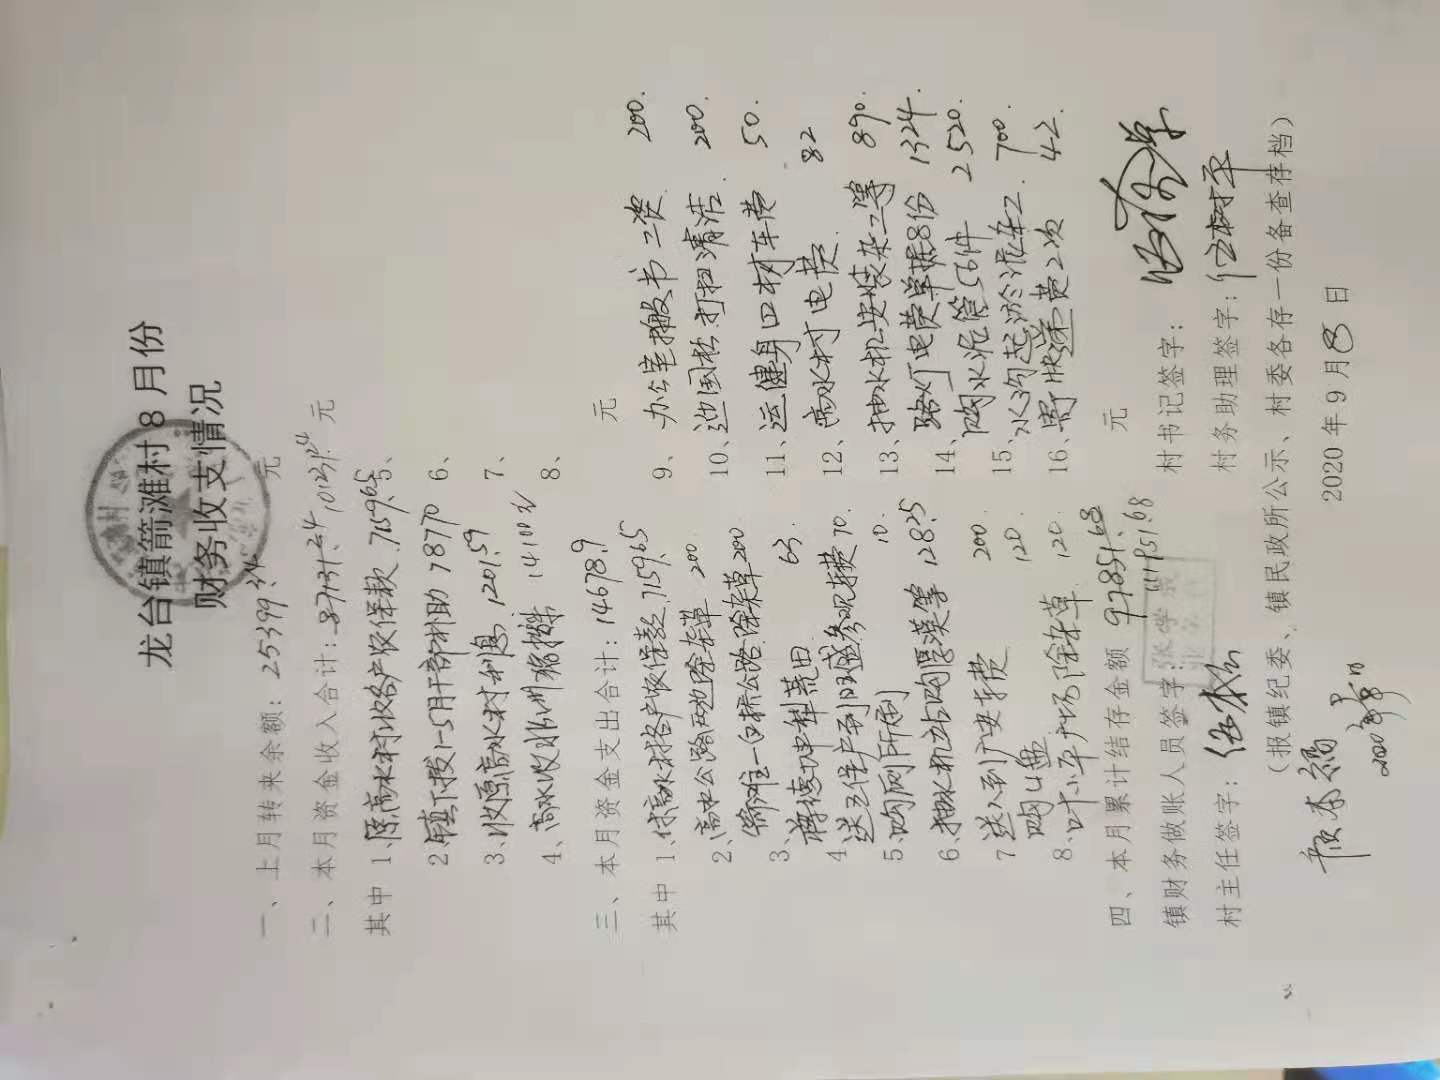 龙台镇箭滩村8月份
财务收支情况
一、上月转来余额：25399.34 元
二、本月资金收入合计：元
其中 1、高水村收各户医保款 7159.65
2、镇下拨1-5月干部补助 78770
3、收原高水村利息 1201.59
4、高水收 1410元
5、
6、
7、
8、
三、本月资金支出合计：14678.9 元
其中 1、付高水村各户医保款 7159.65
高中公路两边除杂草 200
2、箭滩一白桥公路除杂草 200
3、蒋德坤犁荒田 63.
4、送五保户到旺盛参观车费 70.
5、购网厕所 10.
6、抽水机站购 等 128.25
7、送人到广安车费 200
购U盘 120
8、叶小平广场除杂草 120.
9、办公室搬书工资 200.
10、迎国检打扫清洁 200.
11、运健身器材车费 50.
12、高水村电费 82
13、抽水机安装杂工等 890.
路灯电费单据8份 1324.
14、购水泥管56件 2520.
15、水沟起淤泥车工 700.
16、寄快递费2次 42.
四、本月累计结存金额 97851.68 元
镇财务做账人员签字 村书记签字：
村主任签字： 村务助理签字：伍树平
（报镇纪委、镇民政所公示、村委各存一份备查存档）
2020年9月8日